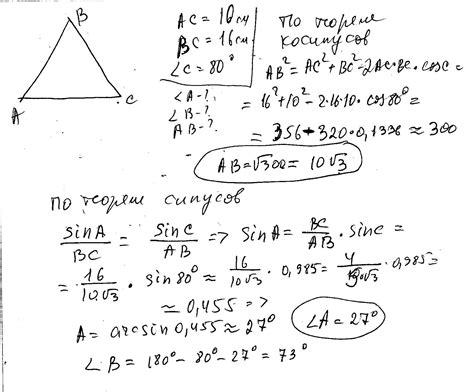 B
A
C
AC = 10 см
BC = 16 см
∠C = 80°
∠A - ?
∠B - ?
AB - ?
По теореме
косинусов
AB² = AC² + BC² - 2AC·BC·cosC =
= 16² + 10² - 2·16·10·cos80° =
= 356 - 320·0,1736 ≈ 300
AB = √300 = 10√3
По теореме синусов
sinA/BC = sinC/AB => sinA = BC/AB · sinC =
= 16/10√3 · sin80° ≈ 16/10√3 · 0,985 = 4/10√3 · 0,985 =
≈ 0,455 =>
A = arcsin 0,455 ≈ 27°
∠A = 27°
∠B = 180° - 80° - 27° = 73°